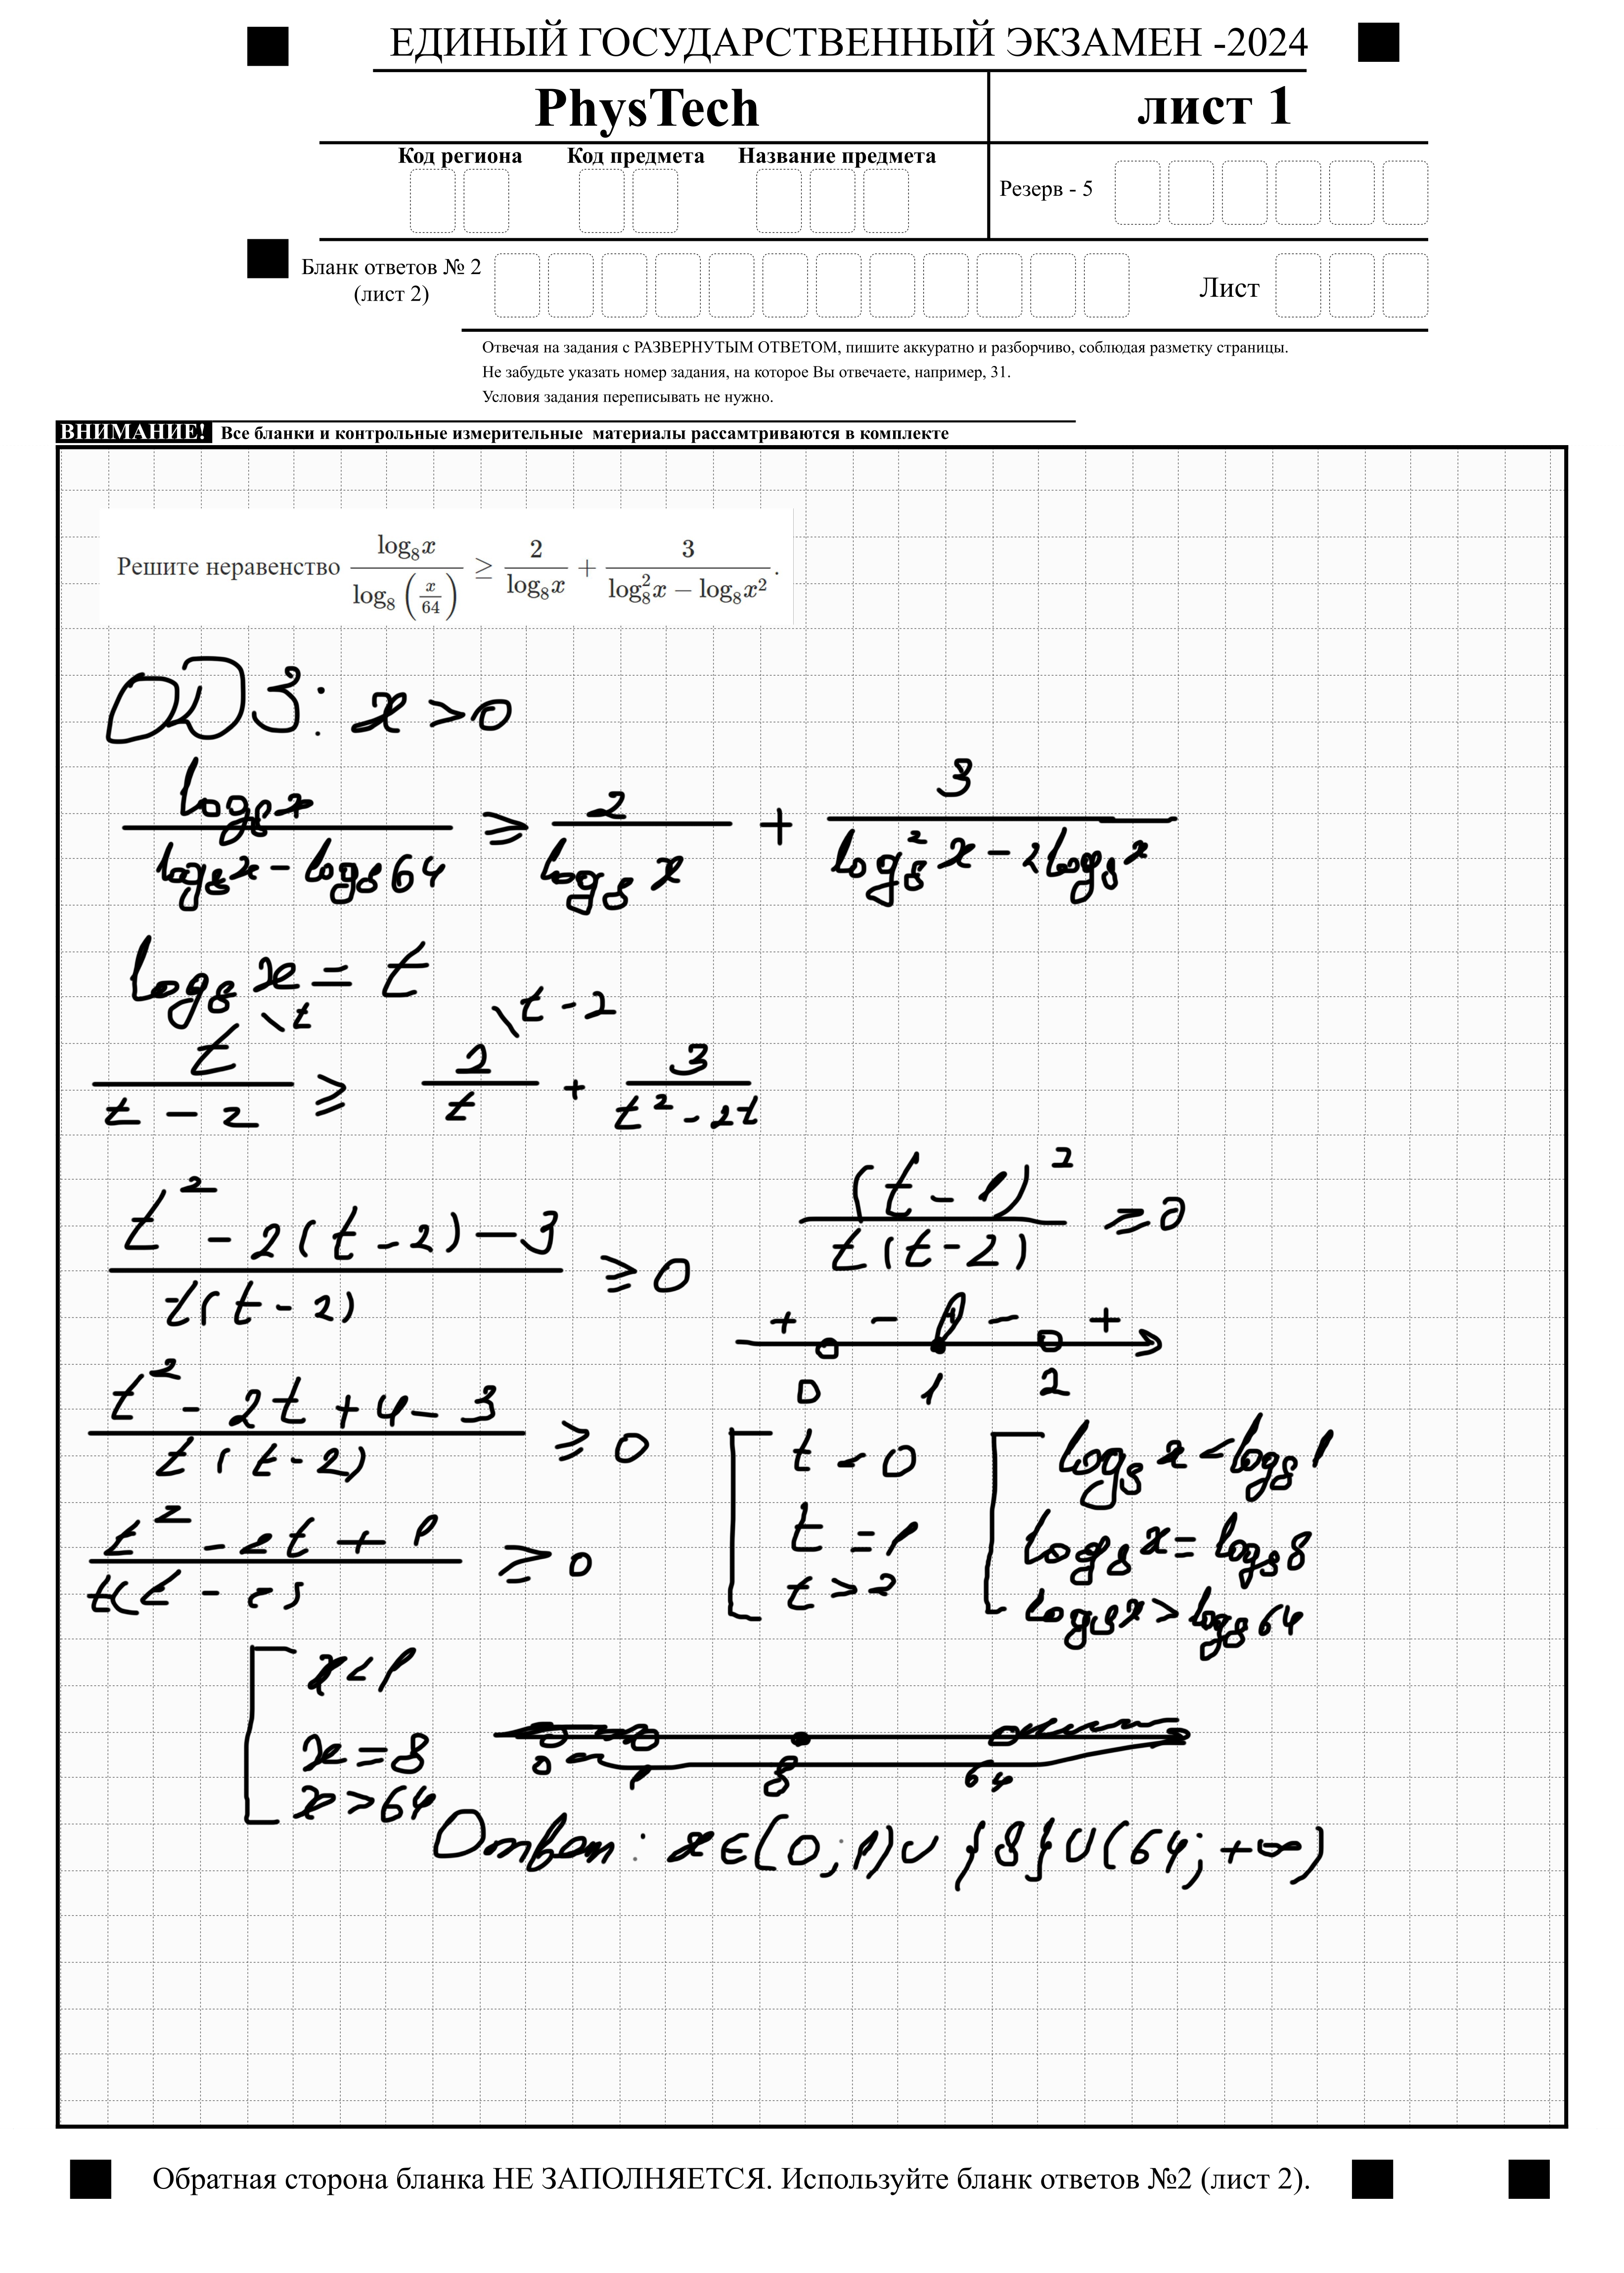 ЕДИНЫЙ ГОСУДАРСТВЕННЫЙ ЭКЗАМЕН -2024
PhysTech
лист 1
Код региона Код предмета Название предмета
Резерв - 5
Бланк ответов № 2
(лист 2)
Лист
Отвечая на задания с РАЗВЕРНУТЫМ ОТВЕТОМ, пишите аккуратно и разборчиво, соблюдая разметку страницы.
Не забудьте указать номер задания, на которое Вы отвечаете, например, 31.
Условия задания переписывать не нужно.
ВНИМАНИЕ! Все бланки и контрольные измерительные материалы рассамтриваются в комплекте
Решите неравенство \frac{\log_8 x}{\log_8 \left(\frac{x}{64}\right)} ≥ \frac{2}{\log_8 x} + \frac{3}{\log_8^2 x - \log_8 x^2}.
ОДЗ: x > 0
\frac{\log_8 x}{\log_8 x - \log_8 64} ≥ \frac{2}{\log_8 x} + \frac{3}{\log_8^2 x - 2\log_8 x}
\log_8 x = t
\frac{t}{t - 2}^{\t} ≥ \frac{2}{t}^{\t - 2} + \frac{3}{t^2 - 2t}
\frac{t^2 - 2(t - 2) - 3}{t(t - 2)} ≥ 0
\frac{t^2 - 2t + 4 - 3}{t(t - 2)} ≥ 0
\frac{t^2 - 2t + 1}{t(t - 2)} ≥ 0
\frac{(t - 1)^2}{t(t - 2)} ≥ 0
+ - - +
0 1 2
[ t < 0
t = 1
t > 2
[ \log_8 x < \log_8 1
\log_8 x = \log_8 8
\log_8 x > \log_8 64
[ x < 1
x = 8
x > 64
0 1 8 64
Ответ: x ∈ (0; 1) ∪ {8} ∪ (64; +∞)
Обратная сторона бланка НЕ ЗАПОЛНЯЕТСЯ. Используйте бланк ответов №2 (лист 2).